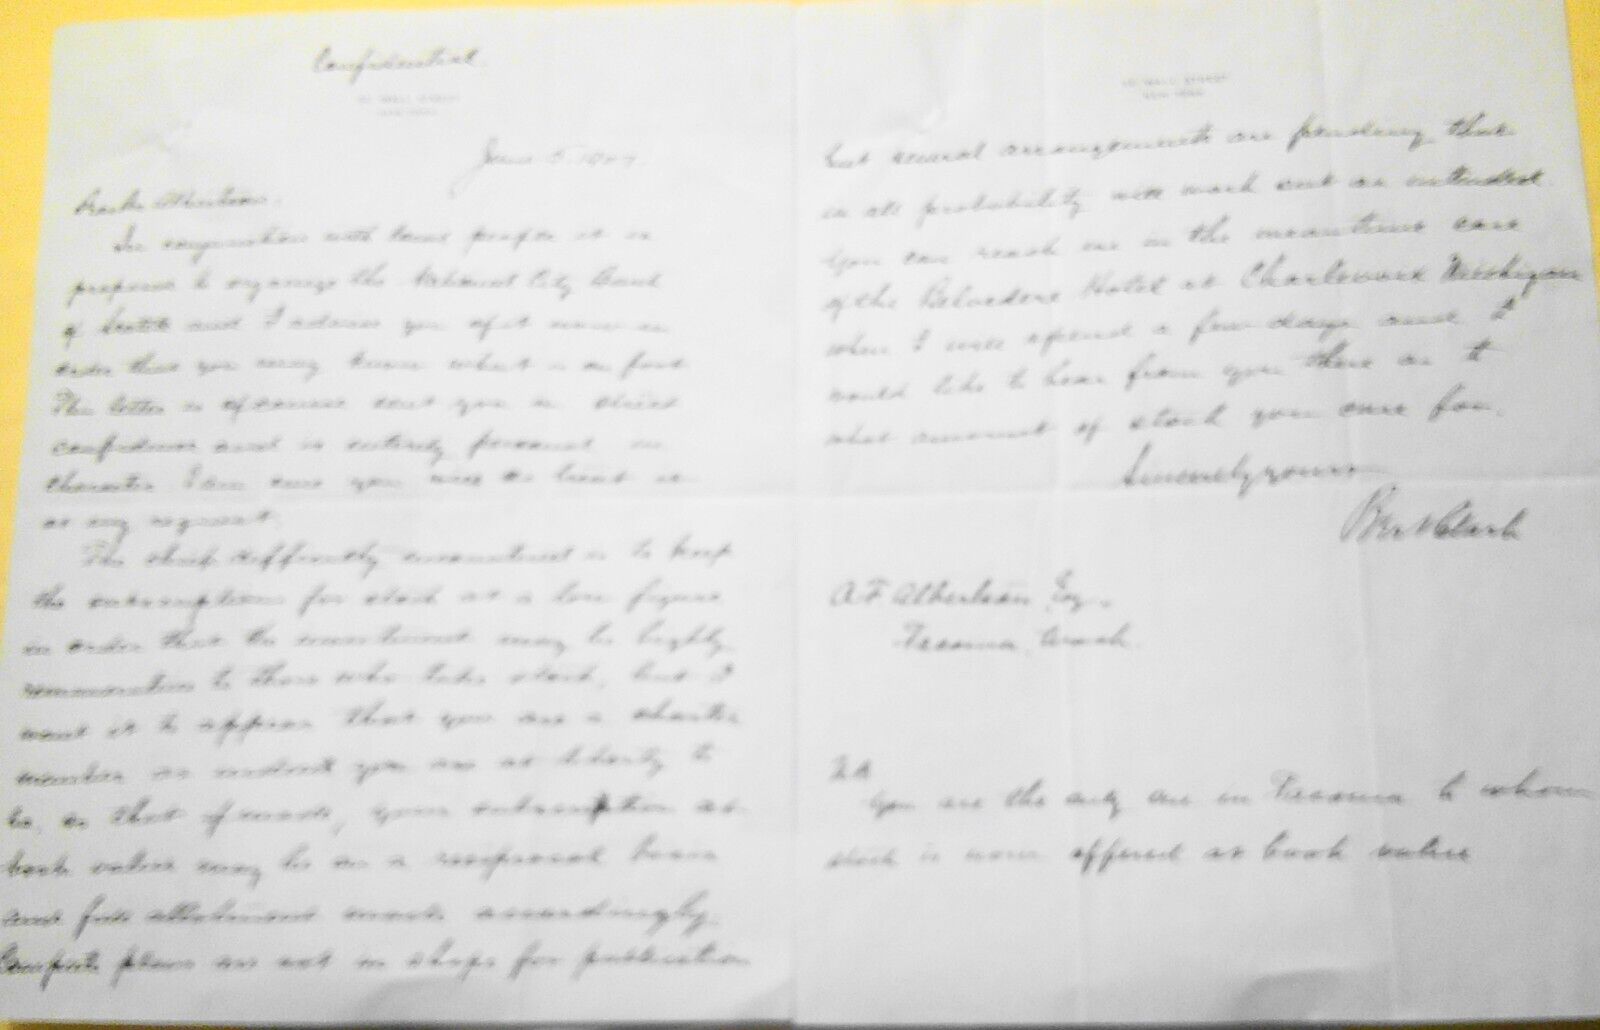 Confidential
WALL STREET
NEW YORK
June 5
In conjunction with some people it is
proposed to organize the National City Bank
of Seattle and I advise you of it now in
order that you may know what is on foot
This letter is of course sent you in strict
confidence and is entirely personal in
character I am sure you will so treat it
at my request.
The chief difficulty encountered is to keep
the subscriptions for stock at a low figure
in order that the investment may be highly
remunerative to those who take stock, but I
want it to appear that you are a charter
member as indeed you are at liberty to
be, so that if made, your subscription at
book value may be on a reciprocal basis
and full allotment made accordingly.
Complete plans are not in shape for publication
WALL STREET
NEW YORK
but several arrangements are pending that
in all probability will work out as intended.
You can reach me in the meantime care
of the Belvedere Hotel at Charlevoix Michigan
where I will spend a few days and I
would like to hear from you there as to
what amount of stock you care for.
Sincerely yours
Clark
A F Albertson Esq.
Tacoma, Wash.
You are the only one in Tacoma to whom
stock is now offered at book value